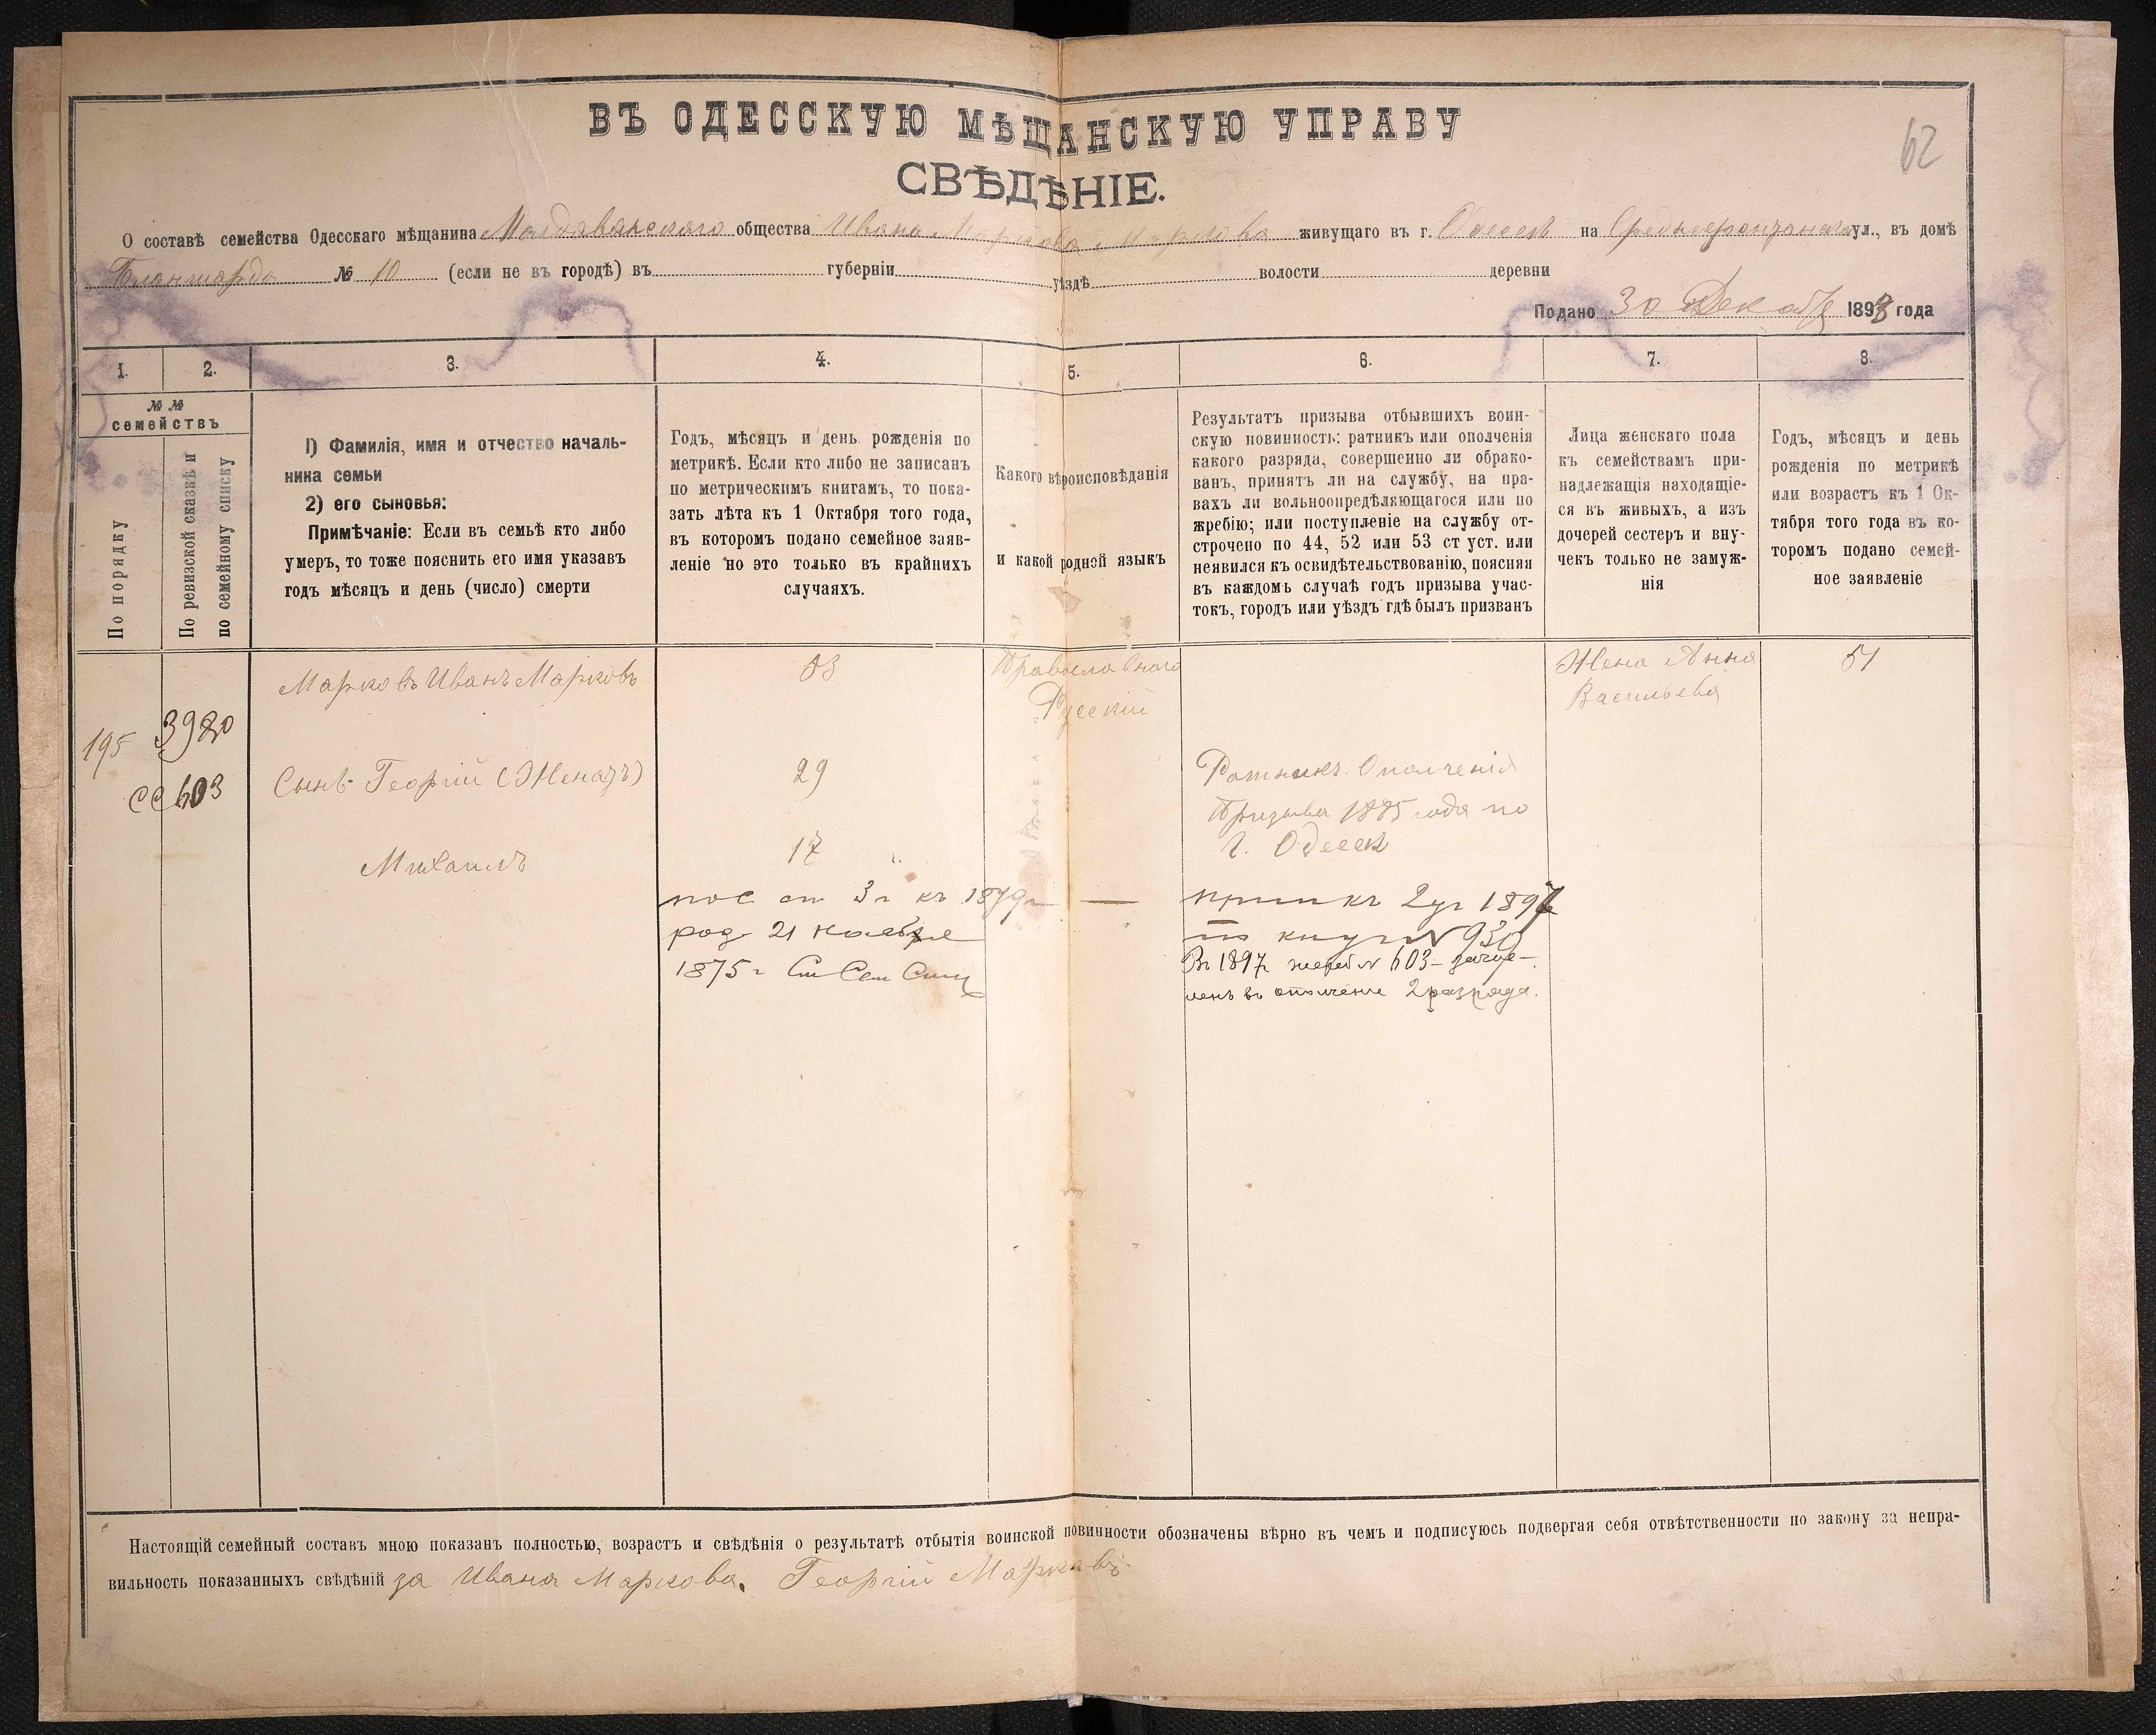 62
ВЪ ОДЕССКУЮ МѢЩАНСКУЮ УПРАВУ
СВѢДѢНІЕ.
О составѣ семейства Одесскаго мѣщанина Молдаванскаго общества Ивана Маркова Маркова живущаго въ г. Одессѣ на ул., въ домѣ
№ 10 (если не въ городѣ) въ губерніи уѣздѣ волости деревни
Подано 30 Декабр 1893 года
1. 2. 3. 4. 5. 6. 7. 8.
№№
семействъ
По порядку
По ревизской сказкѣ и
по семейному списку
1) Фамилія, имя и отчество началь-
ника семьи
2) его сыновья:
Примѣчаніе: Если въ семьѣ кто либо
умеръ, то тоже пояснить его имя указавъ
годъ мѣсяцъ и день (число) смерти
Годъ, мѣсяцъ и день рожденія по
метрикѣ. Если кто либо не записанъ
по метрическимъ книгамъ, то пока-
зать лѣта къ 1 Октября того года,
въ которомъ подано семейное заяв-
леніе но это только въ крайнихъ
случаяхъ.
Какого вѣроисповѣданія
и какой родной языкъ
Результатъ призыва отбывшихъ воин-
скую повинность: ратникъ или ополченія
какого разряда, совершенно ли обрако-
ванъ, принятъ ли на службу, на пра-
вахъ ли вольноопредѣляющагося или по
жребію; или поступленіе на службу от-
строчено по 44, 52 или 53 ст уст. или
неявился къ освидѣтельствованію, поясняя
въ каждомъ случаѣ годъ призыва учас-
токъ, городъ или уѣздъ гдѣ былъ призванъ
Лица женскаго пола
къ семействамъ при-
надлежащія находящіе-
ся въ живыхъ, а изъ
дочерей сестеръ и вну-
чекъ только не замуж-
нія
Годъ, мѣсяцъ и день
рожденія по метрикѣ
или возрастъ къ 1 Ок-
тября того года въ ко-
торомъ подано семей-
ное заявленіе
Марковъ Иванъ Марковъ 53 Православнаго Жена Анна 51
Русскій Васильева
195 3980
Сынъ Георгій (Женатъ) 29 Ратникъ Ополченія
СС 603 Призыва 1885 года по
г. Одесск
Михаилъ 17
пос ст 3 г къ 1879 г — прип къ 2 уч 1897
род 21 ноября по книгѣ № 930
1875 г Въ 1897 г жереб № 603 – зачис-
ленъ въ ополченіе 2 разряда.
Настоящій семейный составъ мною показанъ полностью, возрастъ и свѣдѣнія о результатѣ отбытія воинской повинности обозначены вѣрно въ чемъ и подписуюсь подвергая себя отвѣтственности по закону за непра-
вильность показанныхъ свѣдѣній за Ивана Маркова. Георгій Марковъ